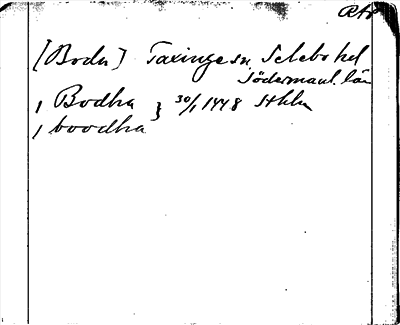 [Boda] Taxinge sn Selebo hd
Södermanl. län
, Bodha } 30/1 1448 Sthlm
, boodha